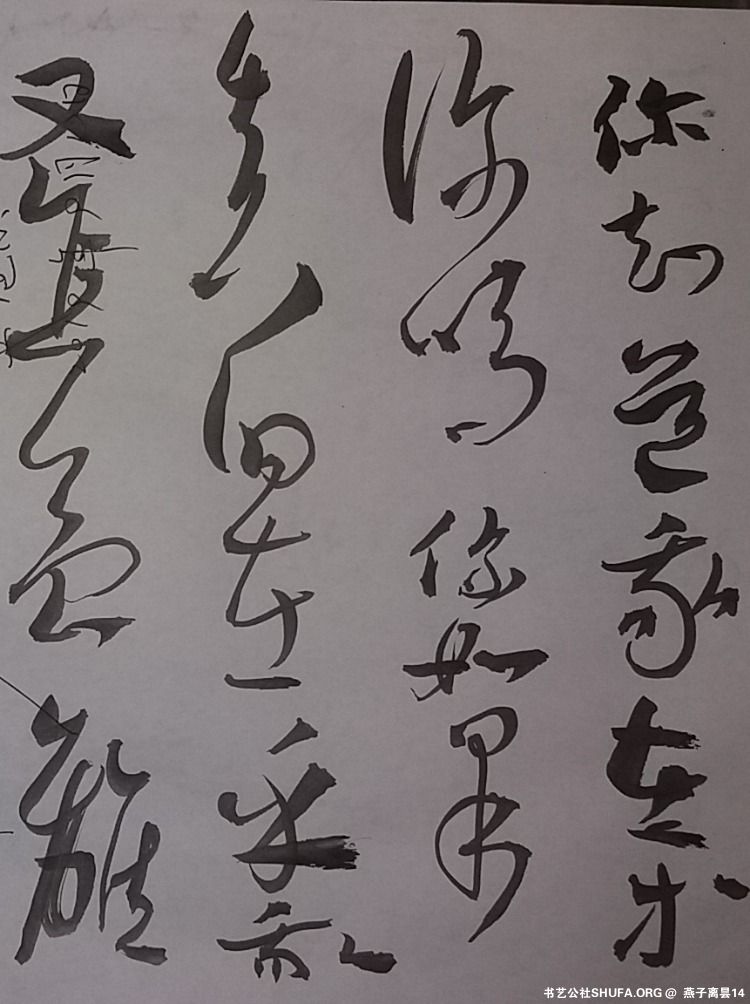 你知道我在等
你吗你如果
真的在乎我
又怎会
书艺公社SHUFA.ORG @ 燕子离昙14